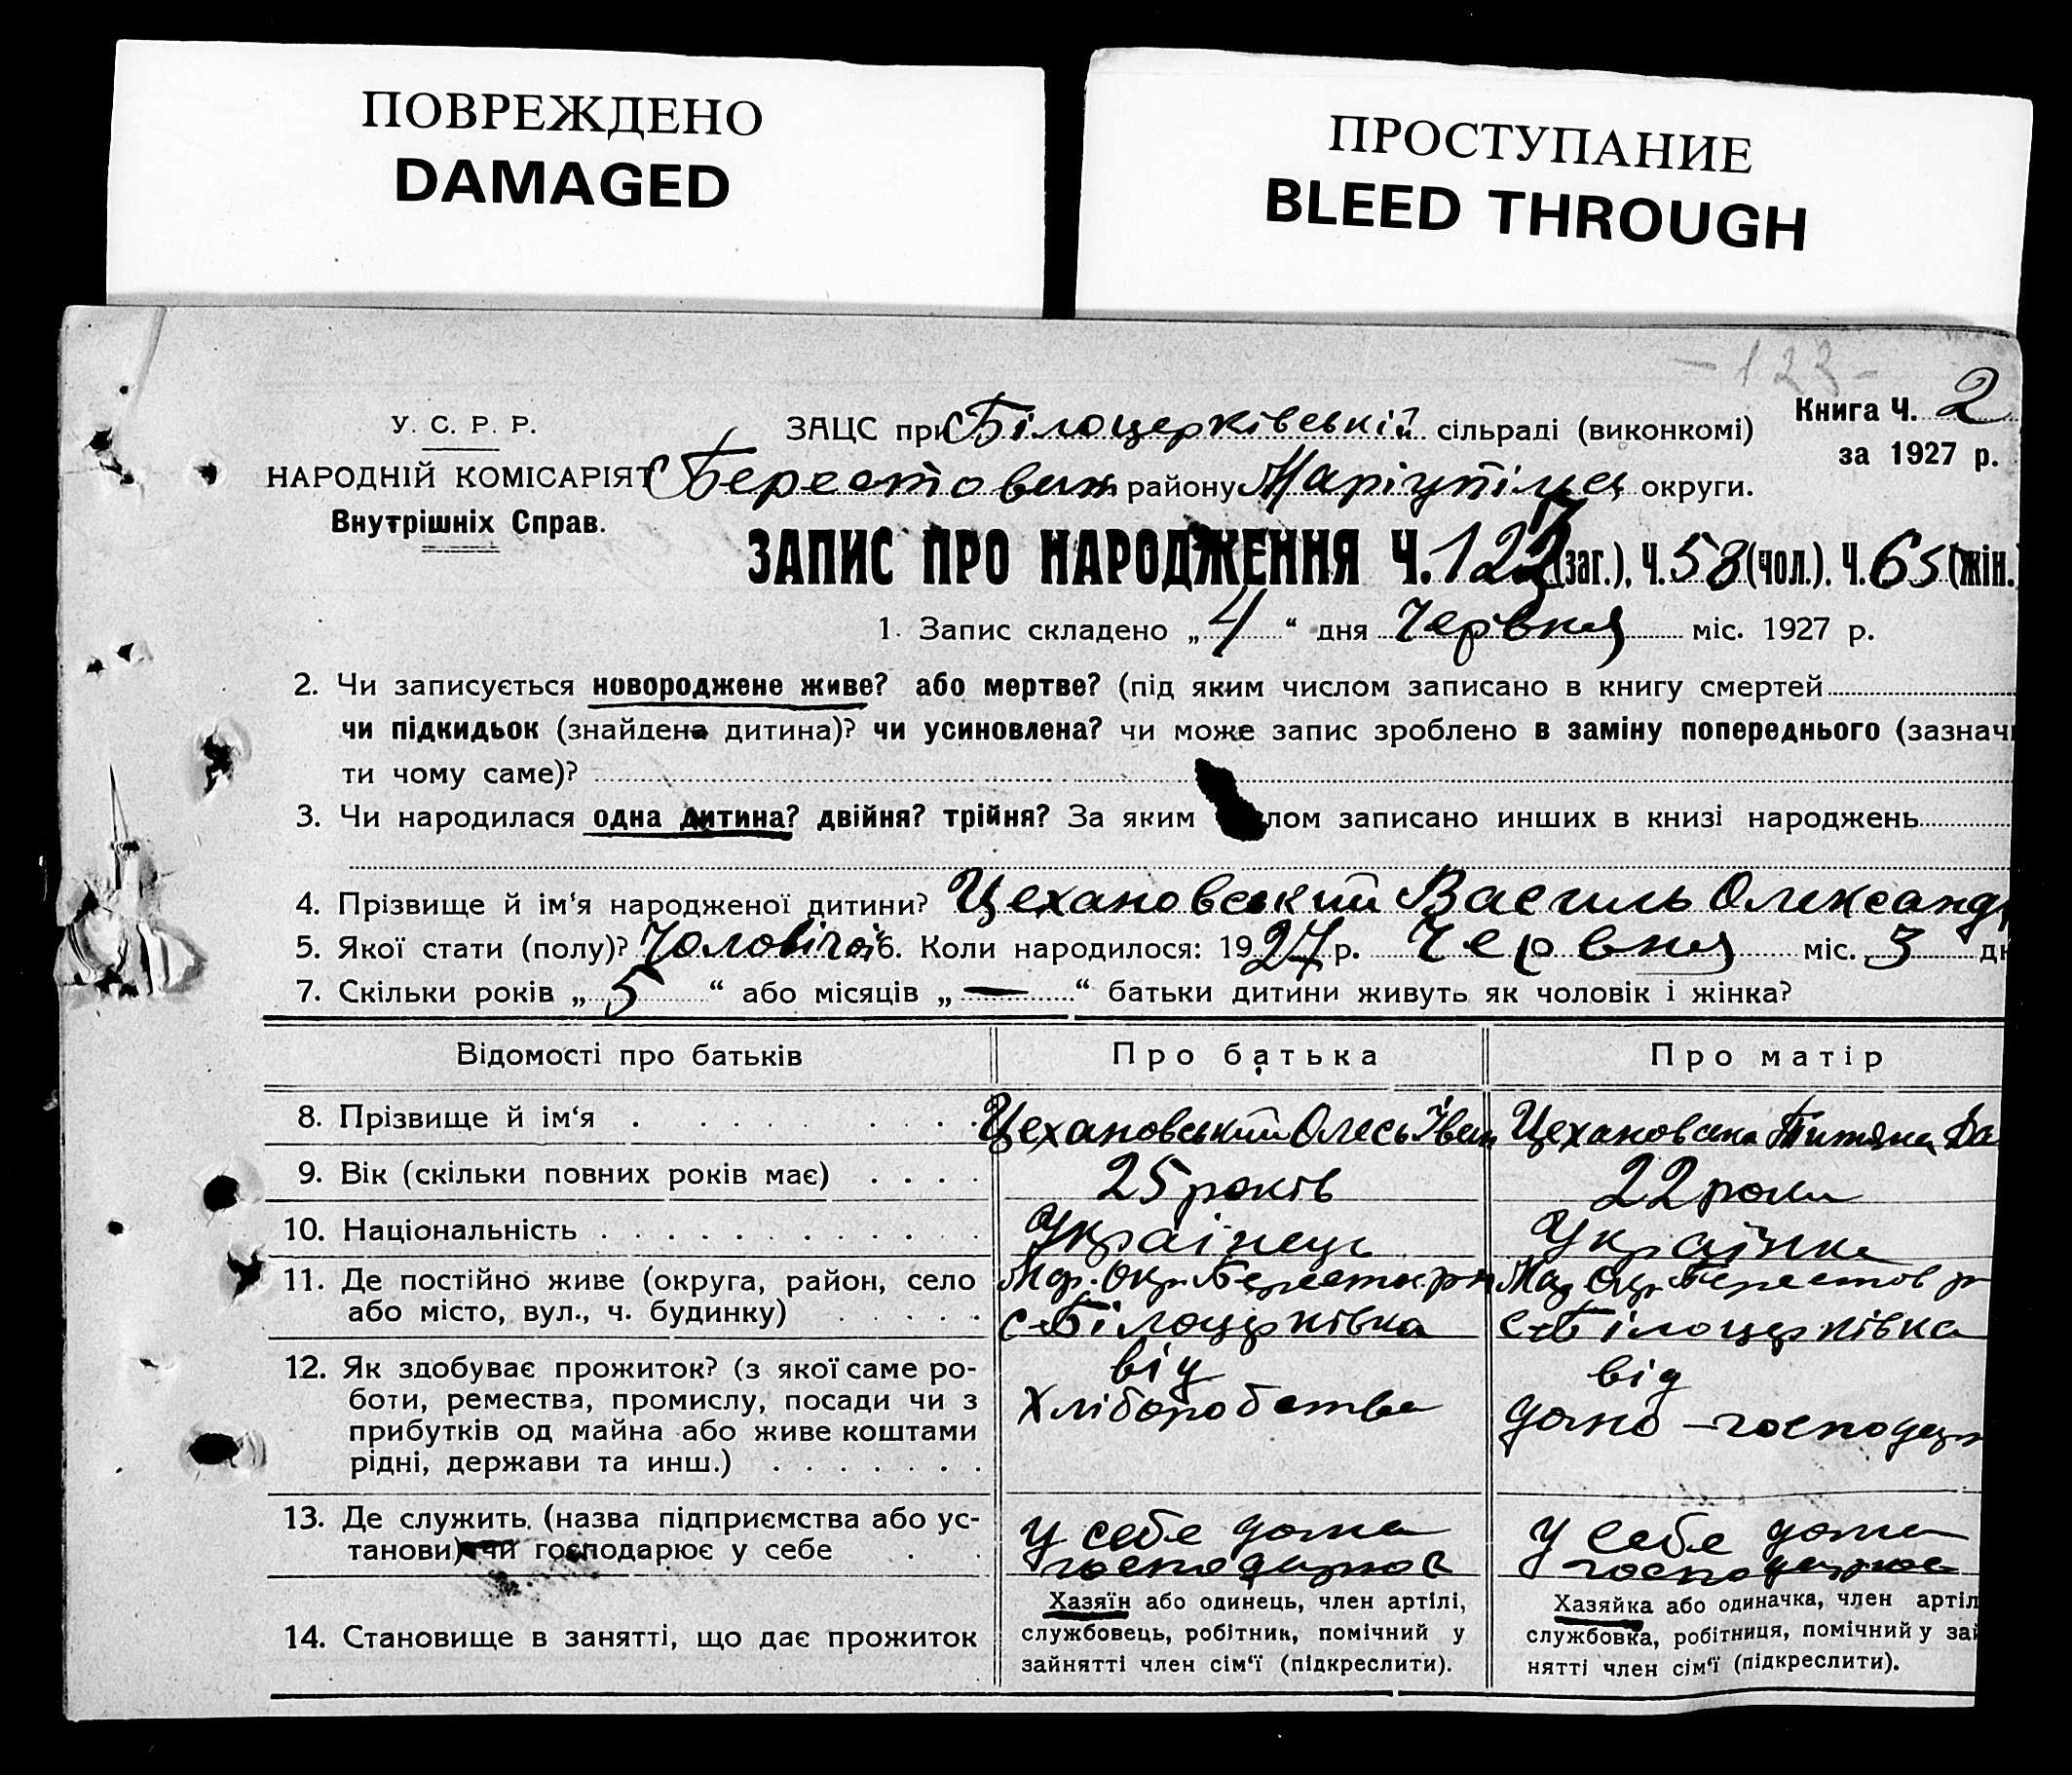 ПОВРЕЖДЕНО
DAMAGED
ПРОСТУПАНИЕ
BLEED THROUGH
-123-
У. С. Р. Р.
НАРОДНІЙ КОМІСАРІЯТ
Внутрішніх Справ.
ЗАЦС при Білоцерківській сільраді (виконкомі)
Книга Ч. 2
за 1927 р.
Берестовин району Маріупільс округи.
ЗАПИС ПРО НАРОДЖЕННЯ Ч. 123 (заг.), Ч. 58 (чол.). Ч. 65 (жін.
1. Запис складено „ 4 “ дня Червня міс. 1927 р.
2. Чи записується новороджене живе? або мертве? (під яким числом записано в книгу смертей
чи підкидьок (знайдена дитина)? чи усиновлена? чи може запис зроблено в заміну попереднього (зазначи
ти чому саме)?
3. Чи народилася одна дитина? двійня? трійня? За яким лом записано инших в книзі народжень
4. Прізвище й ім‘я народженої дитини? Цехановський Василь Олександр
5. Якої стати (полу)? Чоловічої 6. Коли народилося: 1927 р. Червня міс. 3 дн
7. Скільки років „ 5 “ або місяців „ — “ батьки дитини живуть як чоловік і жінка?
Відомості про батьків Про батька Про матір
8. Прізвище й ім‘я Цехановський Олесь Іван Цехановська Титяна Ва
9. Вік (скільки повних років має) 25 років 22 роки
10. Національність Українець Українка
11. Де постійно живе (округа, район, село Мар. Окр. Берестов. рн Мар Окр. Берестов р
або місто, вул., ч. будинку) с. Білоцерківка с. Білоцерківка
12. Як здобуває прожиток? (з якої саме ро- від від
боти, ремества, промислу, посади чи з Хліборобства домо-господар
прибутків од майна або живе коштами
рідні, держави та инш.)
13. Де служить (назва підприємства або ус- у себе дома у себе дома
танови) чи господарює у себе господарює господарює
14. Становище в занятті, що дає прожиток
Хазяїн або одинець, член артілі,
службовець, робітник, помічний у
зайнятті член сім‘ї (підкреслити).
Хазяйка або одиначка, член артіл
службовка, робітниця, помічний у зай
нятті член сім‘ї (підкреслити).